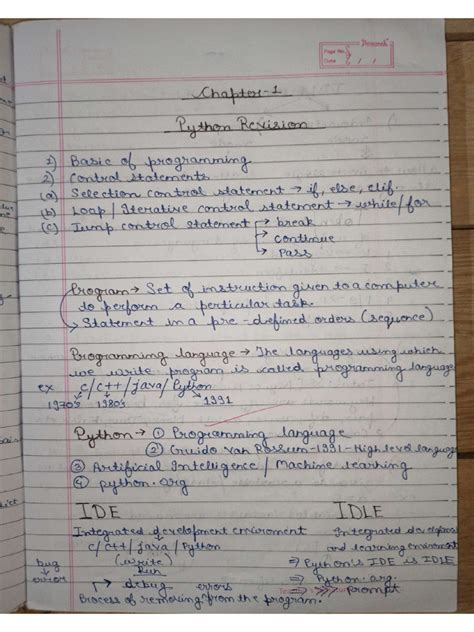 Page No.
Date / /
Chapter-1
Python Revision
1) Basic of programming
2) Control statements
(a) Selection control statement → if, else, elif.
(b) Loop / Iterative control statement → while/for
(c) Jump control statement → break
→ continue
→ Pass
Program → Set of instruction given to a computer
to perform a perticular task.
→ Statement in a pre-defined orders (sequence)
Programming language → The languages using which
we write program is called programming language
ex c/c++/java/Python
1970's 1980's → 1991
Python → ① Programming language
② Guido Van Rossum-1991-High level language
③ Artificial Intelligence / Machine learning
④ python.org
IDE
Integrated development enviroment
c/c++/java/Python
(write)
Run
bug → error
→ debug errors
Process of removing from the program.
IDLE
Integrated
and learning
⇒ Python's IDE is IDLE
⇒ Python.org.
⇒ >>> Prompt